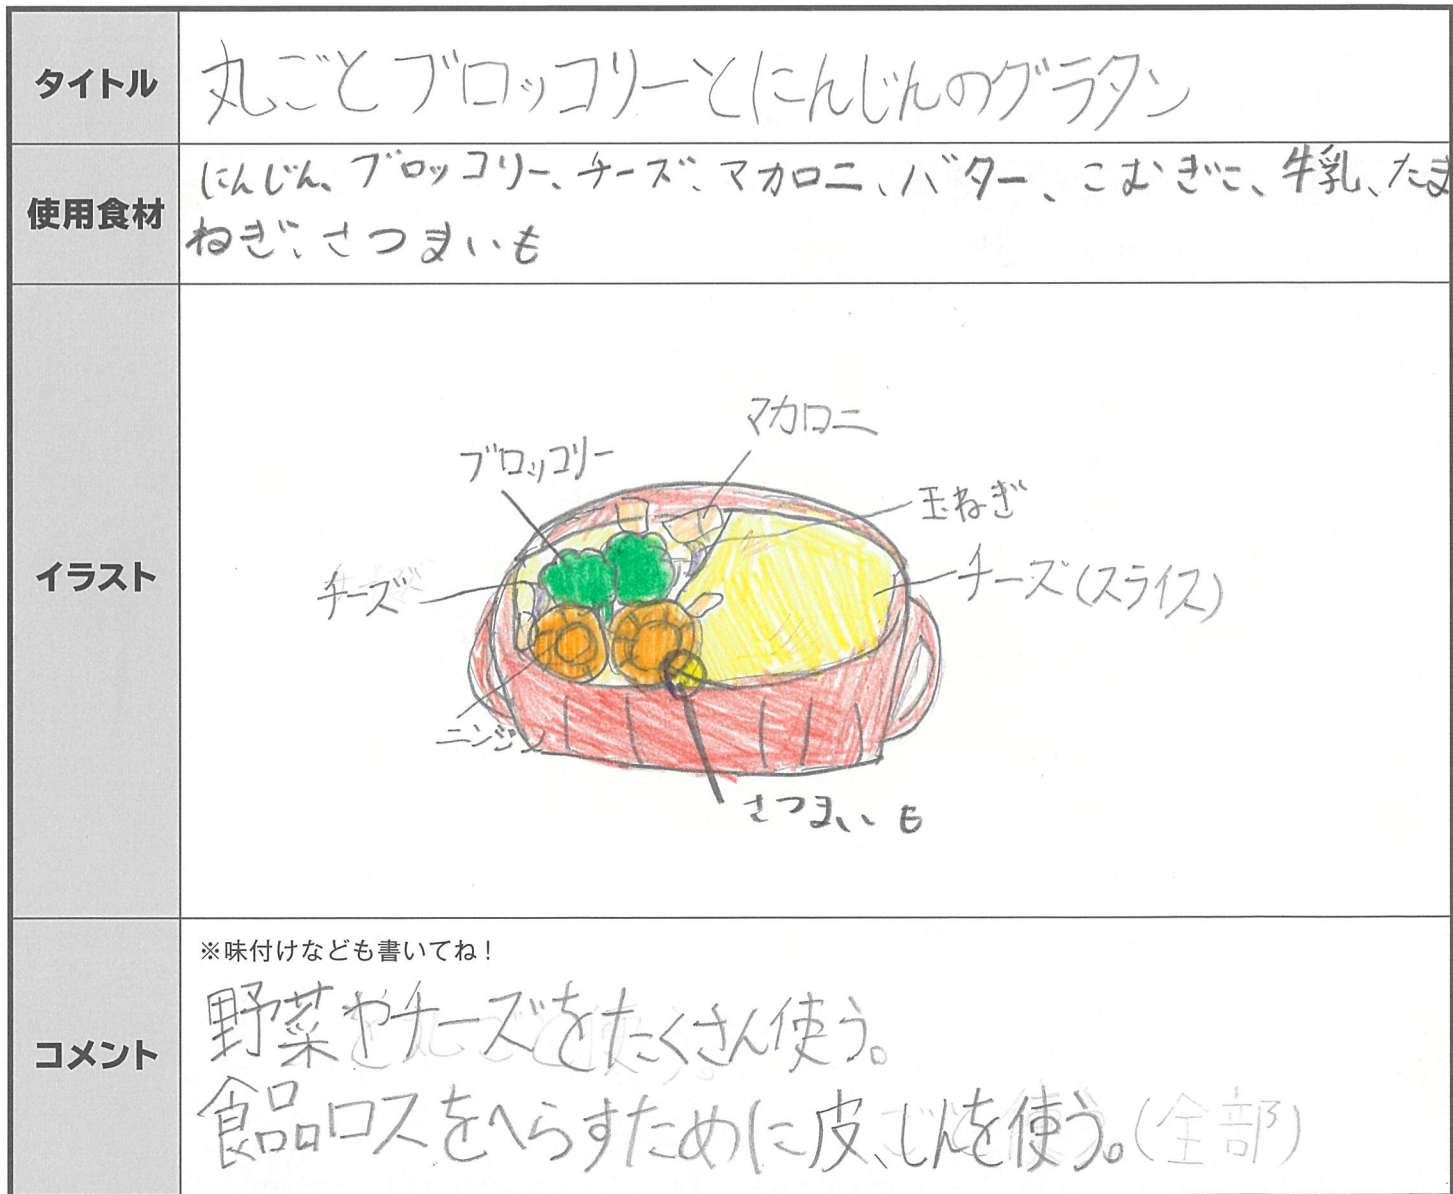 タイトル
丸ごとブロッコリーとにんじんのグラタン
使用食材
にんじん、ブロッコリー、チーズ、マカロニ、バター、こむぎこ、牛乳、たま
ねぎ、さつまいも
イラスト
マカロニ
ブロッコリー
玉ねぎ
チーズ
チーズ(スライス)
ニンジン
さつまいも
コメント
※味付けなども書いてね!
野菜やチーズをたくさん使う。
食品ロスをへらすために皮、じんを使う。(全部)